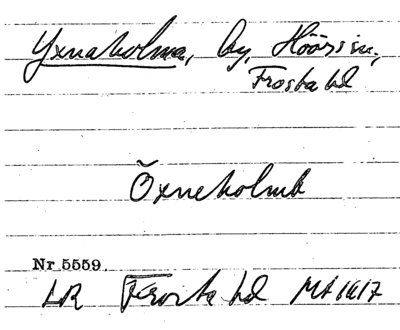 Yxnaholma, by, Höörs sn,
Frosta hd
Öxneholmb
Nr 5559.
LR Frosta hd Mt 1617